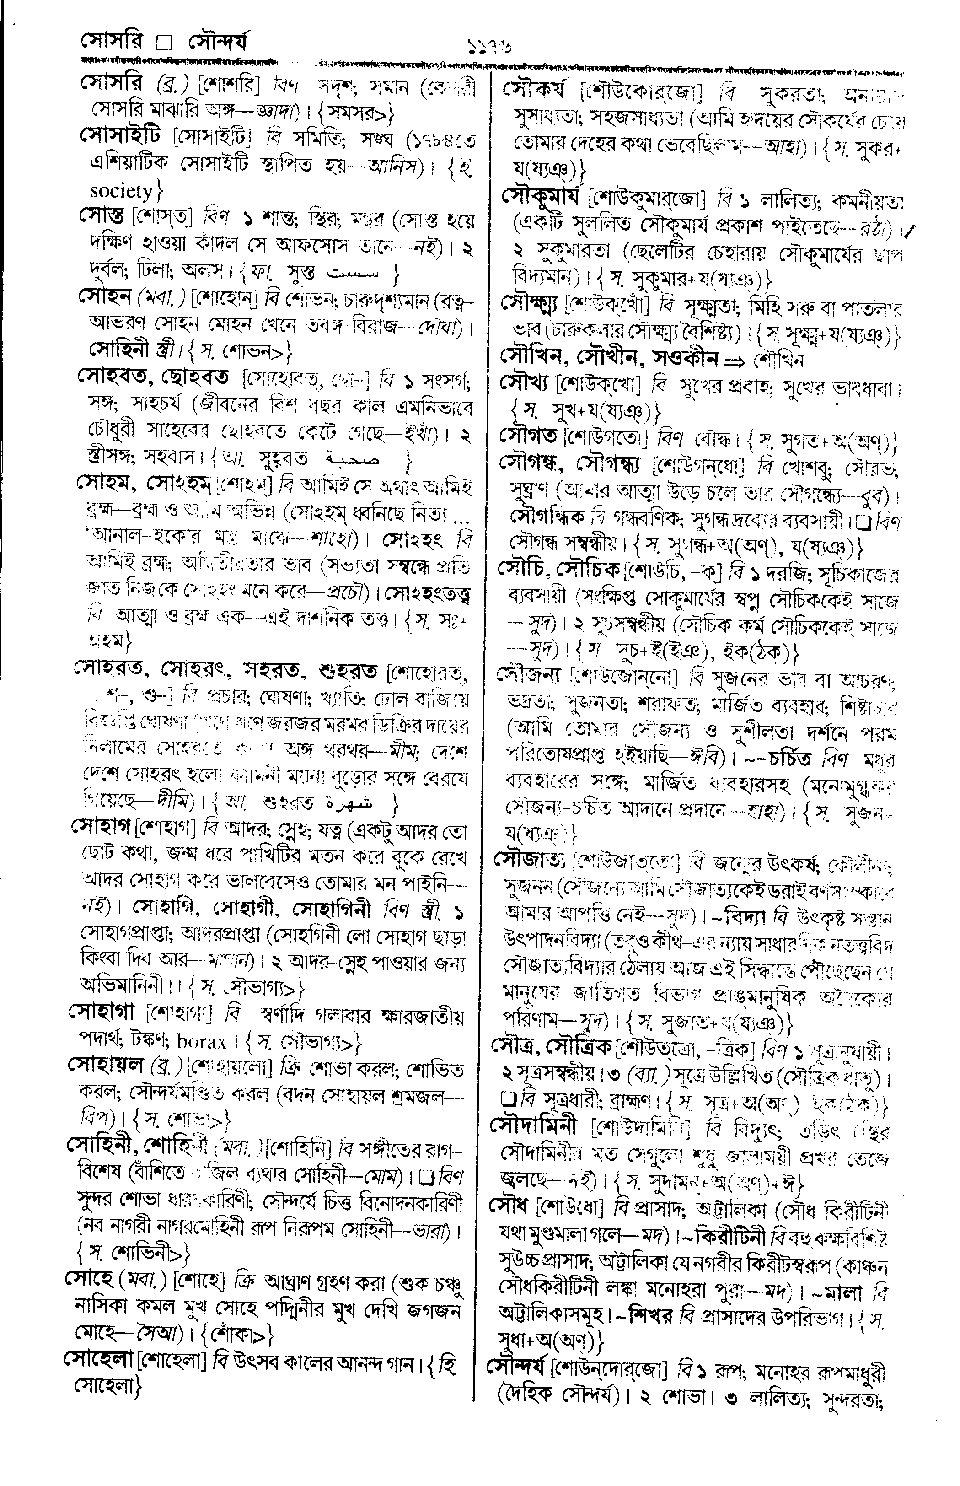 সোসরি □ সৌন্দর্য
১১৭৬
সোসরি (ব্র.) [শোশরি] বিণ সদৃশ; সমান (কেশরী
সোসরি মাঝারি অঙ্গ—জ্ঞাদা)। {সমসর>}
সোসাইটি [সোসাইটি] বি সমিতি; সঙ্ঘ (১৭৮৪তে
এশিয়াটিক সোসাইটি স্থাপিত হয়—আনিস)। {ই.
society}
সোস্ত [শোস্‌ত্‌] বিণ ১ শান্ত; স্থির; মন্থর (সোস্ত হয়ে
দক্ষিণ হাওয়া কাঁদল সে আফসোস তানে—নই)। ২
দুর্বল; ঢিলা; অলস। {ফা. সুস্ত سست }
সোহন (মবা.) [শোহোন] বি শোভন; চারুদৃশ্যমান (রত্ন-
আভরণ সোহন মোহন খেনে তবঙ্গ বিরাজ—দোখা)।
সোহিনী স্ত্রী। {স. শোভন>}
সোহবত, ছোহবত [সোহোবত, ছো-] বি ১ সংসর্গ;
সঙ্গ; সাহচর্য (জীবনের বিশ বছর কাল এমনিভাবে
চৌধুরী সাহেবের ছোহবতে কেটে গেছে—ইখাঁ)। ২
স্ত্রীসঙ্গ; সহবাস। {আ. সুহ্ববত صحبة }
সোহম, সোঽহম্‌ [শোহম্‌] বি আমিই সে অর্থাৎ আমিই
ব্রহ্ম—ব্রহ্ম ও আমি অভিন্ন (সোঽহম্‌ ধ্বনিছে নিত্য ...
'আনাল-হকে'র মহা মাঝে—শাহো)। সোঽহং বি
আমিই ব্রহ্ম; অদ্বিতীয়তার ভাব (সভ্যতা সম্বন্ধে প্রতি
জাত নিজকে সোঽহং মনে করে—প্রচৌ)। সোঽহংতত্ত্ব
বি আত্মা ও ব্রহ্ম এক—এই দার্শনিক তত্ত্ব। {স. সঃ+
অহম}
সোহরত, সোহরৎ, সহরত, শুহরত [শোহোরত,
শ-, শু-] বি প্রচার; ঘোষণা; খ্যাতি; ঢোল বাজিয়ে
বিজ্ঞপ্তি ঘোষণা জরজর মরমর ডিক্রির দায়ের
নিলামের সোহরতে অঙ্গ থরথর—মীম; দেশে
দেশে সোহরৎ হলো কামিনী ময়না বুড়োর সঙ্গে বেরযে
গিয়েছে—দীমি)। {আ. শুহরত شهرة }
সোহাগ [শোহাগ] বি আদর; স্নেহ; যত্ন (একটু আদর তো
ছোট কথা, জন্ম ধরে পাখিটির মতন করে বুকে রেখে
আদর সোহাগ করে ভালবেসেও তোমার মন পাইনি—
নই)। সোহাগি, সোহাগী, সোহাগিনী বিণ স্ত্রী. ১
সোহাগপ্রাপ্তা; আদরপ্রাপ্তা (সোহগিনী লো সোহাগ ছাড়া
কিংবা দিব আর—)। ২ আদর-স্নেহ পাওয়ার জন্য
অভিমানিনী।। {স. সৌভাগ্য>}
সোহাগা [শোহাগা] বি স্বর্ণাদি গলাবার ক্ষারজাতীয়
পদার্থ; টঙ্কণ; borax। {স. সৌভাগ্য>}
সোহায়ল (ব্র.) [শোহায়লো] ক্রি শোভা করল; শোভিত
করল; সৌন্দর্যমণ্ডিত করল (বদন সোহায়ল শ্রমজল—
বিপ)। {স. শোভা>}
সোহিনী, শোহিনী (মবা.) [শোহিনি] বি সঙ্গীতের রাগ-
বিশেষ (বাঁশিতে বাজিল ব্যথার সোহিনী—মোম)। □ বিণ
সুন্দর শোভা ধারণকারিণী; সৌন্দর্যে চিত্ত বিনোদনকারিণী
(নব নাগরী নাগরমোহিনী রূপ নিরূপম সোহিনী—ভারা)।
{স. শোভিনী>}
সোহে (মবা.) [শোহে] ক্রি আঘ্রাণ গ্রহণ করা (শুক চঞ্চু
নাসিকা কমল মুখ সোহে পদ্মিনীর মুখ দেখি জগজন
মোহে—সৈআ)। {শোঁকা>}
সোহেলা [শোহেলা] বি উৎসব কালের আনন্দ গান। {হি
সোহেলা}
সৌকর্য [শোউকোর্‌জো] বি সুকরতা; অনায়াস
সুসাধ্যতা; সহজসাধ্যতা (আমি হৃদয়ের সৌকর্যের চেয়ে
তোমার দেহের কথা ভেবেছিলাম—আহা)। {স. সুকর+
য(য্যঞ)}
সৌকুমার্য [শোউকুমার্‌জো] বি ১ লালিত্য; কমনীয়তা
(একটি সুললিত সৌকুমার্য প্রকাশ পাইতেছে—রঠা)।
২ সুকুমারতা (ছেলেটির চেহারায় সৌকুমার্যের ছাপ
বিদ্যমান)। {স. সুকুমার+য(ষ্যঞ)}
সৌক্ষ্ম্য [শোউক্‌খোঁ] বি সূক্ষ্মতা; মিহি সরু বা পাতলার
ভাব (চারুকলার সৌক্ষ্ম্য বৈশিষ্ট্য)। {স. সূক্ষ্ম+য(ষ্যঞ)}
সৌখিন, সৌখীন, সওকীন ⇒ শৌখিন
সৌখ্য [শোউক্‌খো] বি সুখের প্রবাহ; সুখের ভাবধারা।
{স. সুখ+য(ষ্যঞ্‌)}
সৌগত [শোউগতো] বিণ বৌদ্ধ। {স. সুগত+অ(অণ্‌)}
সৌগন্ধ, সৌগন্ধ্য [শোউগন্‌ধো] বি খোশবু; সৌরভ;
সুঘ্রাণ (আমার আত্মা উড়ে চলে তার সৌগন্ধ্যে—বুব)।
সৌগন্ধিক বি গন্ধবণিক; সুগন্ধ দ্রব্যের ব্যবসায়ী। □ বিণ
সৌগন্ধ সম্বন্ধীয়। {স. সুগন্ধ+অ(অণ্‌), য(ষ্যঞ্‌)}
সৌচি, সৌচিক [শোউচি, -ক্‌] বি ১ দরজি; সূচিকাজের
ব্যবসায়ী (সংক্ষিপ্ত সৌকুমার্যের স্বপ্ন সৌচিককেই সাজে
—সুদ)। ২ সূচসম্বন্ধীয় (সৌচিক কর্ম সৌচিককেই সাজে
—সুদ)। {স সূচ+ই(ইঞ), ইক(ঠক)}
সৌজন্য [শোউজোন্‌নো] বি সুজনের ভাব বা আচরণ;
ভদ্রতা; সুজনতা; শরাফত; মার্জিত ব্যবহার; শিষ্টাচার
(আমি তোমার সৌজন্য ও সুশীলতা দর্শনে পরম
পরিতোষপ্রাপ্ত হইয়াছি—ঈবি)। ~-চর্চিত বিণ মধুর
ব্যবহারের সঙ্গে; মার্জিত ব্যবহারসহ (মনোমুগ্ধকর
সৌজন্য-চর্চিত আদানে প্রদানে—হাহা)। {স. সুজন+
য(ধ্যঞ)}
সৌজাত্য [শোউজাত্‌তো] বি জন্মের উৎকর্ষ; কৌলীন্য;
সুজনন (সৌজন্যে আমি সৌজাত্যকেই ডরাই বর্ণসংস্কারে
আমার আপত্তি নেই—সুদ)। ~বিদ্যা বি উৎকৃষ্ট সন্তান
উৎপাদনবিদ্যা (তবুও কীথ-এর ন্যায় সাধারণ নৃতত্ত্ববিদ
সৌজাত্যবিদ্যার ঠেলায় আজ এই সিদ্ধান্তে পৌঁছেছেন যে
মানুষের জাতিগত বিভাগ প্রাঙমানুষিক অনৈক্যের
পরিণাম—সুদ)। {স. সুজাত+য(ষ্যঞ)}
সৌত্র, সৌত্রিক [শোউত্‌ত্রো, -ত্রিক] বিণ ১ সূত্রানুযায়ী।
২ সূত্রসম্বন্ধীয়। ৩ (ব্যা.) সূত্রে উল্লিখিত (সৌত্রিক ধাতু)।
□ বি সূত্রধারী; ব্রাহ্মণ। {স. সূত্র+অ(অণ্‌) ইক(ঠিক)}
সৌদামিনী [শোউদামিনি] বি বিদ্যুৎ; তড়িৎ (স্থির
সৌদামিনীর মত সেগুলো শুধু জ্বালাময়ী প্রখর তেজে
জ্বলছে—নই)। {স. সুদামন+অ(অণ্‌)+ঈ}
সৌধ [শোউধো] বি প্রাসাদ; অট্টালিকা (সৌধ কিরীটিনী
যথা মুণ্ডমালা গলে—মদ)। ~কিরীটিনী বি বহু কক্ষবিশিষ্ট
সুউচ্চ প্রাসাদ; অট্টালিকা যে নগরীর কিরীটস্বরূপ (কাঞ্চন
সৌধকিরীটিনী লঙ্কা মনোহরা পুরী—মদ)। ~মালা বি
অট্টালিকাসমূহ। ~শিখর বি প্রাসাদের উপরিভাগ। {স.
সুধা+অ(অণ্‌)}
সৌন্দর্য [শোউন্‌দোর্‌জো] বি ১ রূপ; মনোহর রূপমাধুরী
(দৈহিক সৌন্দর্য)। ২ শোভা। ৩ লালিত্য; সুন্দরতা;